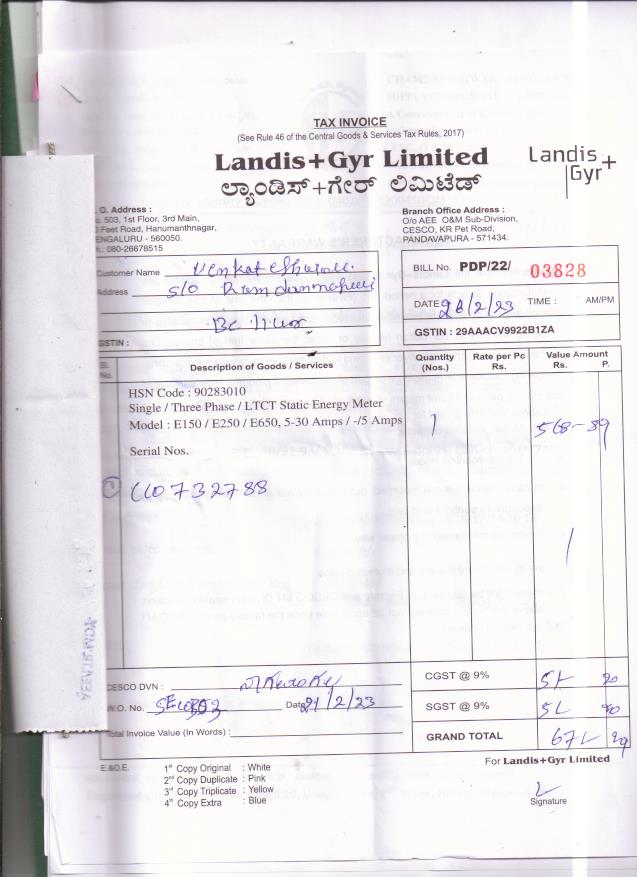 TAX INVOICE
(See Rule 46 of the Central Goods & Services Tax Rules, 2017)
Landis+Gyr Limited
ಲ್ಯಾಂಡಿಸ್+ಗೇರ್ ಲಿಮಿಟೆಡ್
Landis+
Gyr
O. Address :
503, 1st Floor, 3rd Main,
Feet Road, Hanumanthnagar,
ENGALURU - 560050.
: 080-26678515
Branch Office Address :
O/o AEE O&M Sub-Division,
CESCO, KR Pet Road,
PANDAVAPURA - 571434.
Customer Name
Address S/O
GSTIN :
BILL No. PDP/22/ 03828
DATE 2/23 TIME : AM/PM
GSTIN : 29AAACV9922B1ZA
Sl. No. Description of Goods / Services Quantity (Nos.) Rate per Pc Rs. Value Amount Rs. P.
HSN Code : 90283010
Single / Three Phase / LTCT Static Energy Meter
Model : E150 / E250 / E650, 5-30 Amps / -/5 Amps 1 568-39
Serial Nos.
110732788
CESCO DVN :
W.O. No. Date 21/2/23
Total Invoice Value (In Words) :
CGST @ 9%
SGST @ 9%
GRAND TOTAL
E.&O.E.
1st Copy Original : White
2nd Copy Duplicate : Pink
3rd Copy Triplicate : Yellow
4th Copy Extra : Blue
For Landis+Gyr Limited
Signature